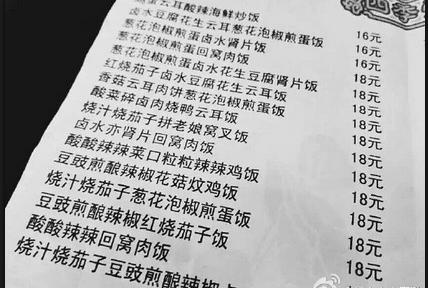 蛋云耳酸辣海鲜炒饭
卤水豆腐花生云耳葱花泡椒煎蛋饭 16元
葱花泡椒煎蛋卤水肾片饭 18元
葱花泡椒煎蛋回窝肉饭 18元
葱花泡椒煎蛋卤水花生豆腐肾片饭 18元
红烧茄子卤水豆腐花生云耳饭 18元
香菇云耳肉饼葱花泡椒煎蛋饭 18元
酸菜碎卤肉烧鸭云耳饭 18元
烧汁烧茄子拼老娘窝叉饭 18元
卤水亦肾片回窝肉饭 18元
酸酸辣辣菜口粒粒辣辣鸡饭 18元
豆豉煎酿辣椒花菇炆鸡饭 18元
烧汁烧茄子葱花泡椒煎蛋饭 18元
豆豉煎酿辣椒红烧茄子饭 18元
酸酸辣辣回窝肉饭
烧汁烧茄子豆豉煎酿辣椒
四季